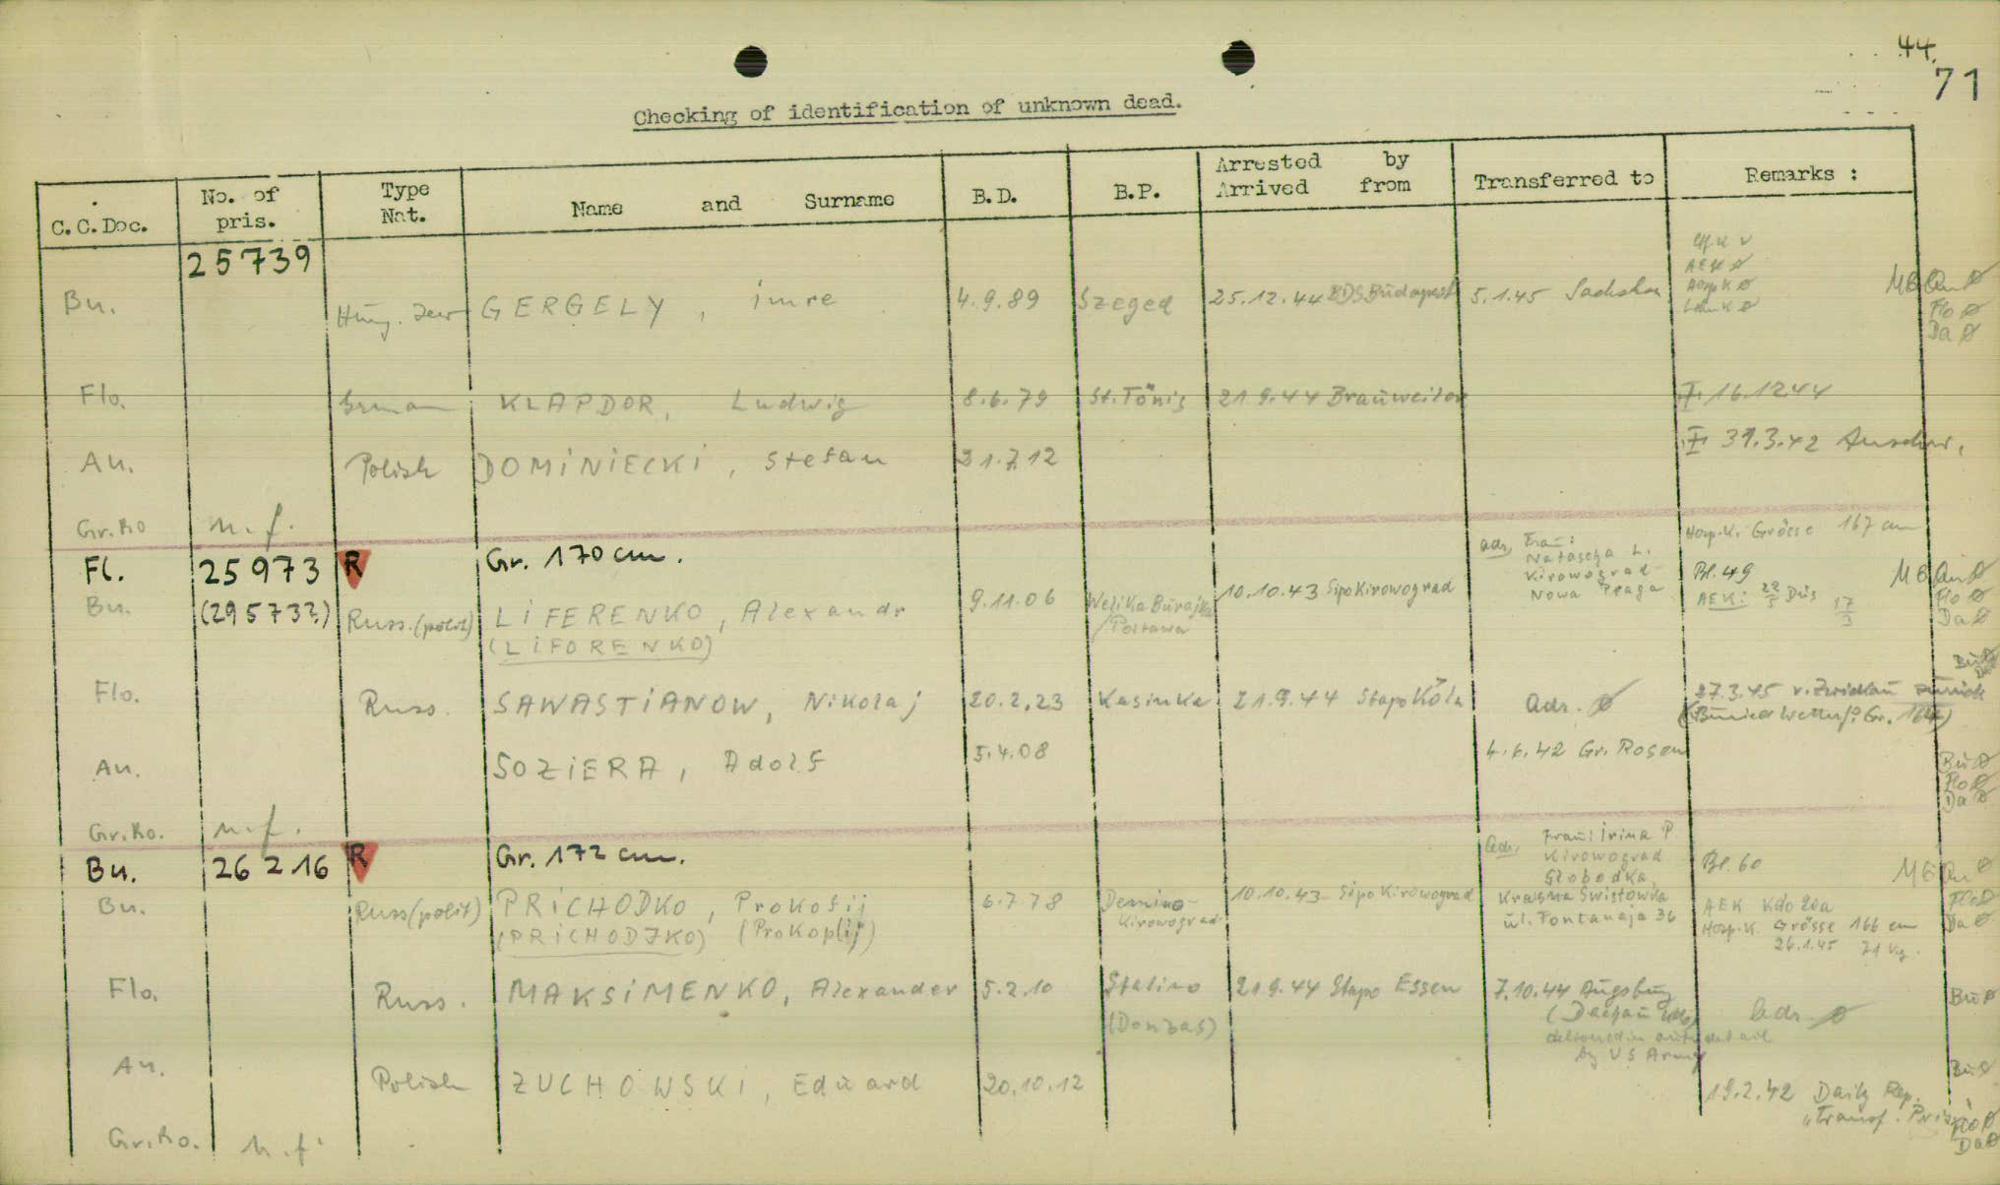 44.
71
Checking of identification of unknown dead.
C.C.Doc. No. of pris. Type Nat. Name and Surname B.D. B.P. Arrested by Arrived from Transferred to Remarks :
25739
Bu. Hung. Jew GERGELY, imre 4.9.89 Szeged 25.12.44 BDS Budapest 5.1.45
AEK ø
MB Au ø
Flo ø
Da ø
Flo. German KLAPDOR, Ludwig 8.6.79 St. Tönis 21.9.44 Brauweiler 16.12.44
Au. Polish DOMiNiECKi, Stefan 31.7.12 31.3.42
Gr.Ro n.f. Hosp.K. Grösse 167 cm
Fl. 25973 R Gr. 170 cm.
adr. Frau:
Natascha L.
Kirowograd
Nowa Praga
Bl. 49
AEK:
MB Au ø
Flo ø
Da ø
Bu. (29573?) Russ.(polit) LiFERENKO, Alexandr 9.11.06 Welika Burajka 10.10.43 Sipo Kirowograd
(LiFORENKO) /Poltawa
Flo. Russ. SAWASTiANOW, Nikolaj 20.2.23 Kasinka 21.9.44 Stapo Köln Adr. ø 27.3.45 v. Zwickau zurück
Au. SOZiERA, Adolf 5.4.08 4.6.42 Gr. Rosen
Bu ø
Flo ø
Da ø
Gr.Ro. n.f.
Bu. 26216 R Gr. 172 cm.
Adr. Frau: irina P.
Kirowograd
Slobodka
Bl. 60
MB Au ø
Flo ø
Da ø
Bu. Russ(polit) PRiCHODKO, Prokofij 6.7.78 Demino- 10.10.43 Sipo Kirowograd
(PRiCHODJKO) (Prokoplij) Kirowograd
Krasna Swistowka
ul. Fontanaja 36
AEK Kdo 20a
Hosp.K. Grösse 166 cm
26.1.45 71 kg.
Flo. Russ. MAKSiMENKO, Alexander 5.2.10 Stalino 21.9.44 Stapo Essen 7.10.44 Augsburg Adr. ø Bu ø
(Donbas)
by US Army
Au. Polish ZUCHOWSKi, Eduard 20.10.12 19.2.42 Daily Rep.
Bu ø
Flo ø
Da ø
Gr.Ro. n.f.